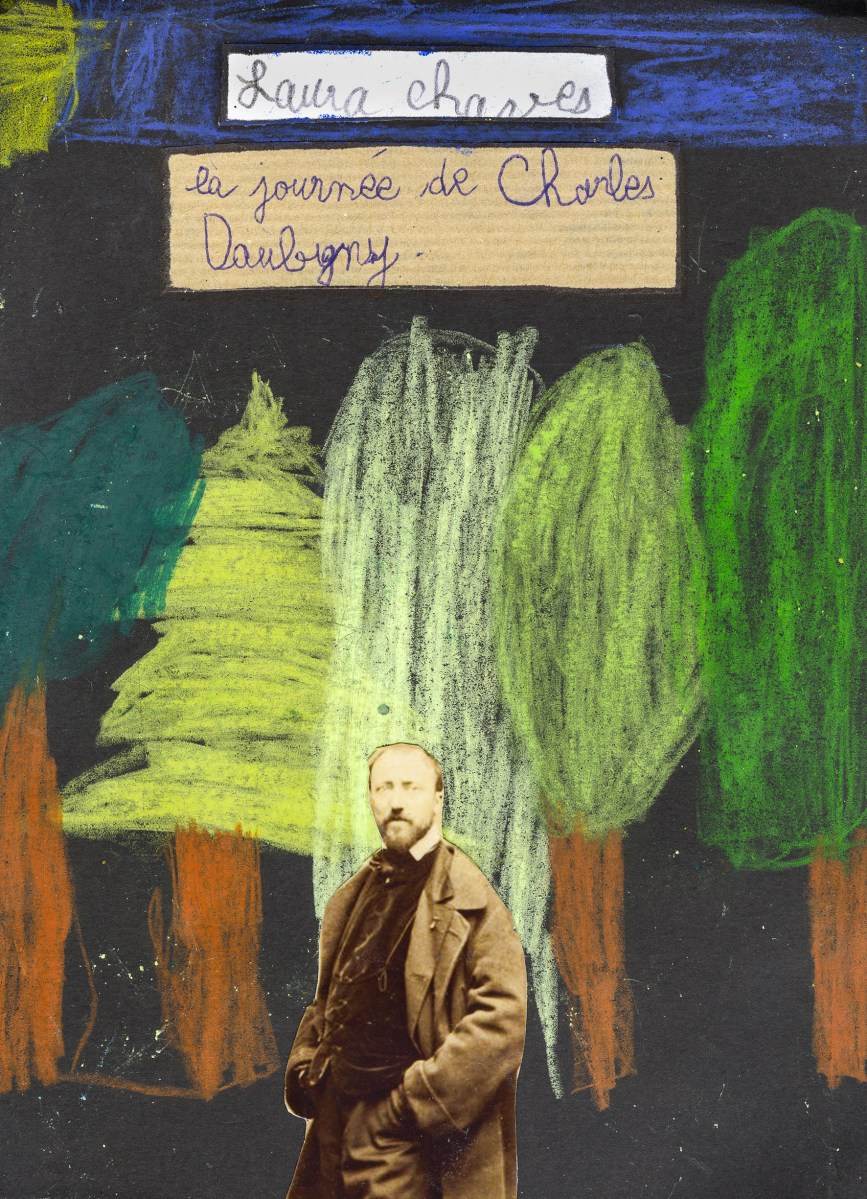 Laura chaves
la journée de Charles
Daubigny.